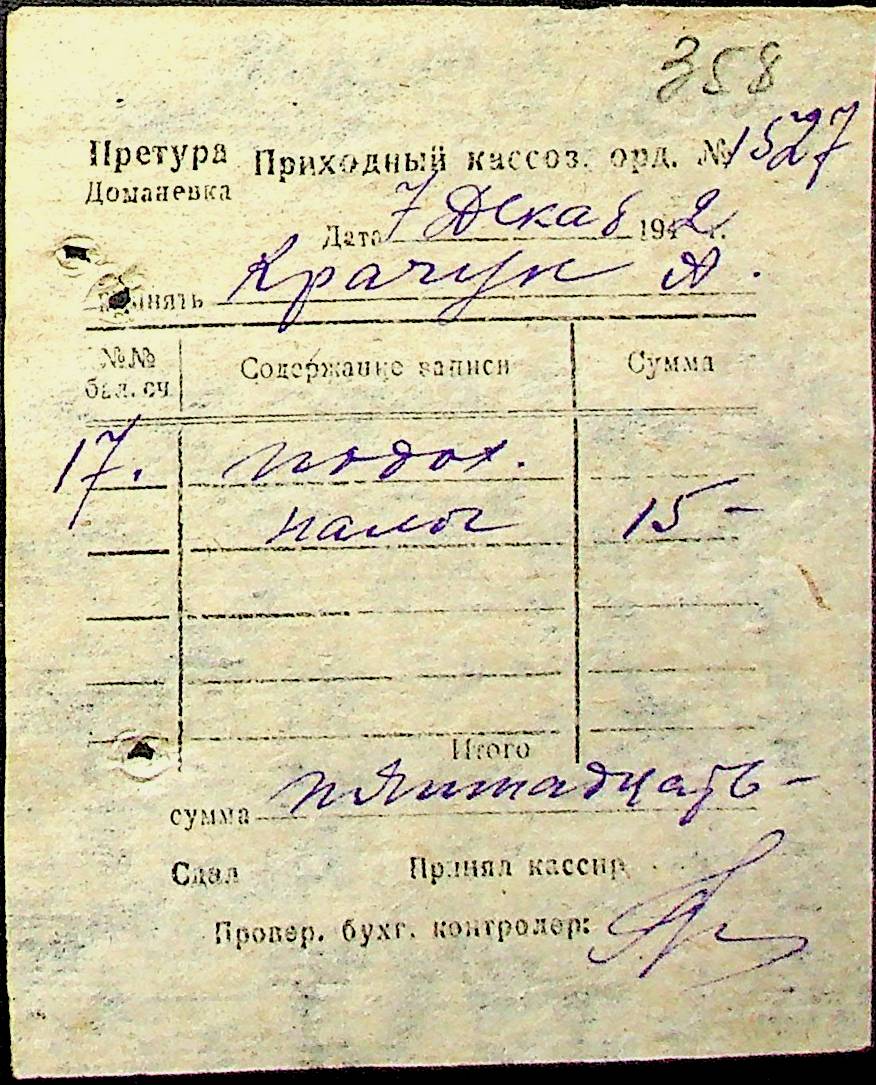 358
Претура Приходный кассоз. орд. № 1527
Доманевка
Дата 7 Декаб 1942 г.
Принять Крачук А.
№№ бал. сч. Содержание записи Сумма
17. подох.
налог 15 –
Итого
сумма пятнадцать –
Сдал Принял кассир
Провер. бухг. контролер: